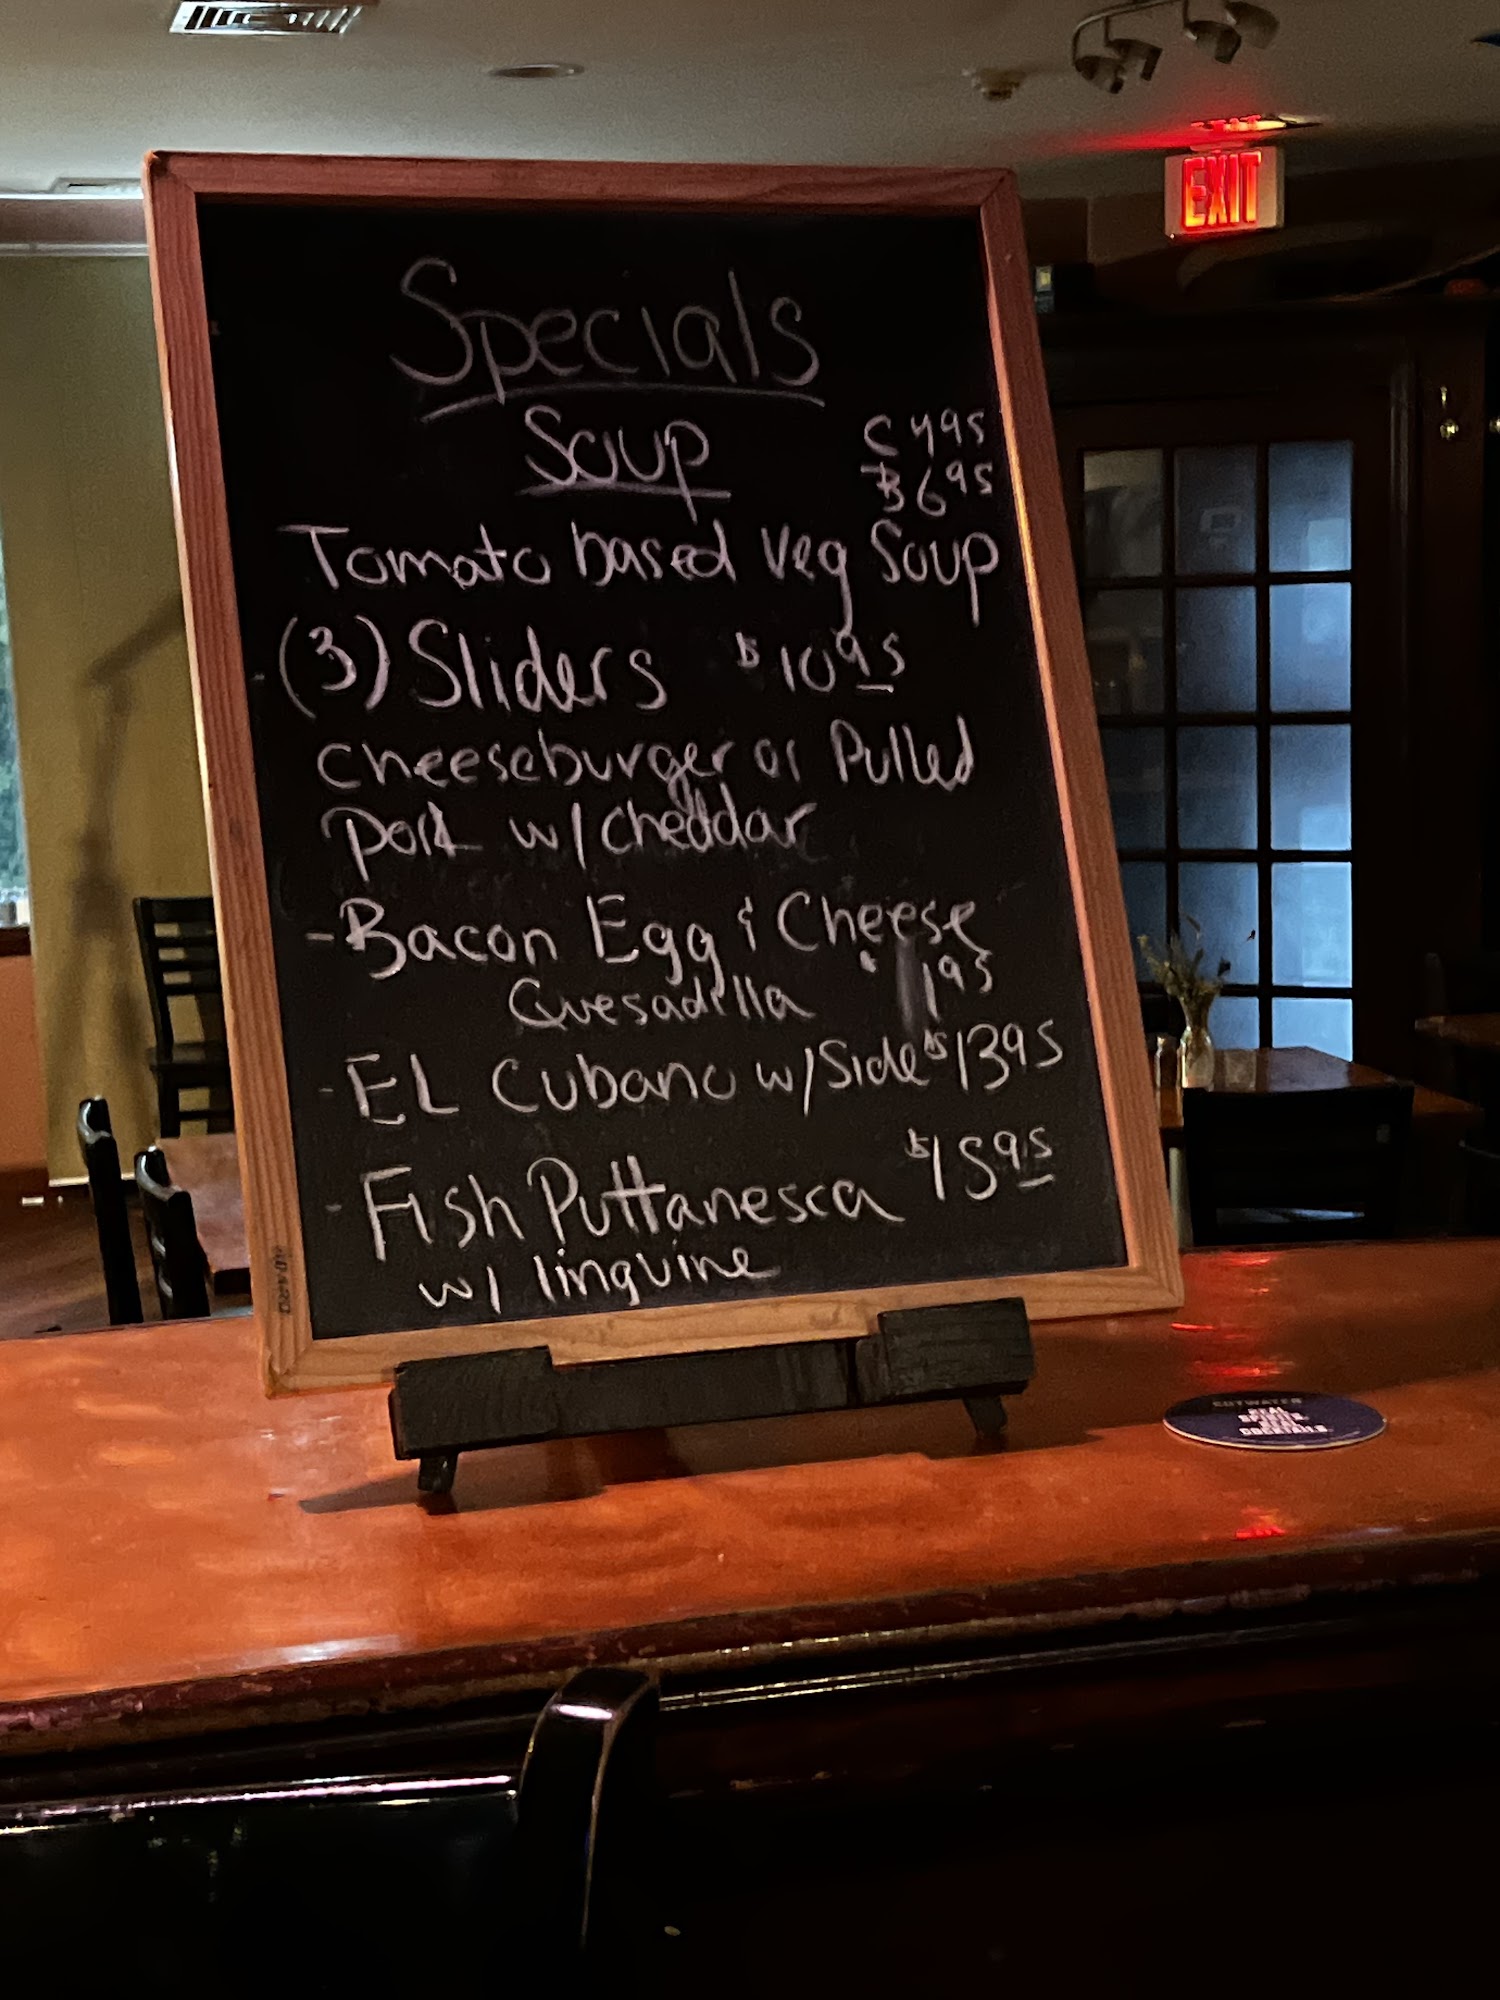 EXIT
Specials
Soup
C 495
B 695
Tomato based Veg Soup
(3) Sliders $1095
cheeseburger or Pulled
pork w/ cheddar
- Bacon Egg & Cheese
Quesadilla
- EL Cubano w/Side $1395
- Fish Puttanesca $1595
w/ linguine
CUTWATER
REAL